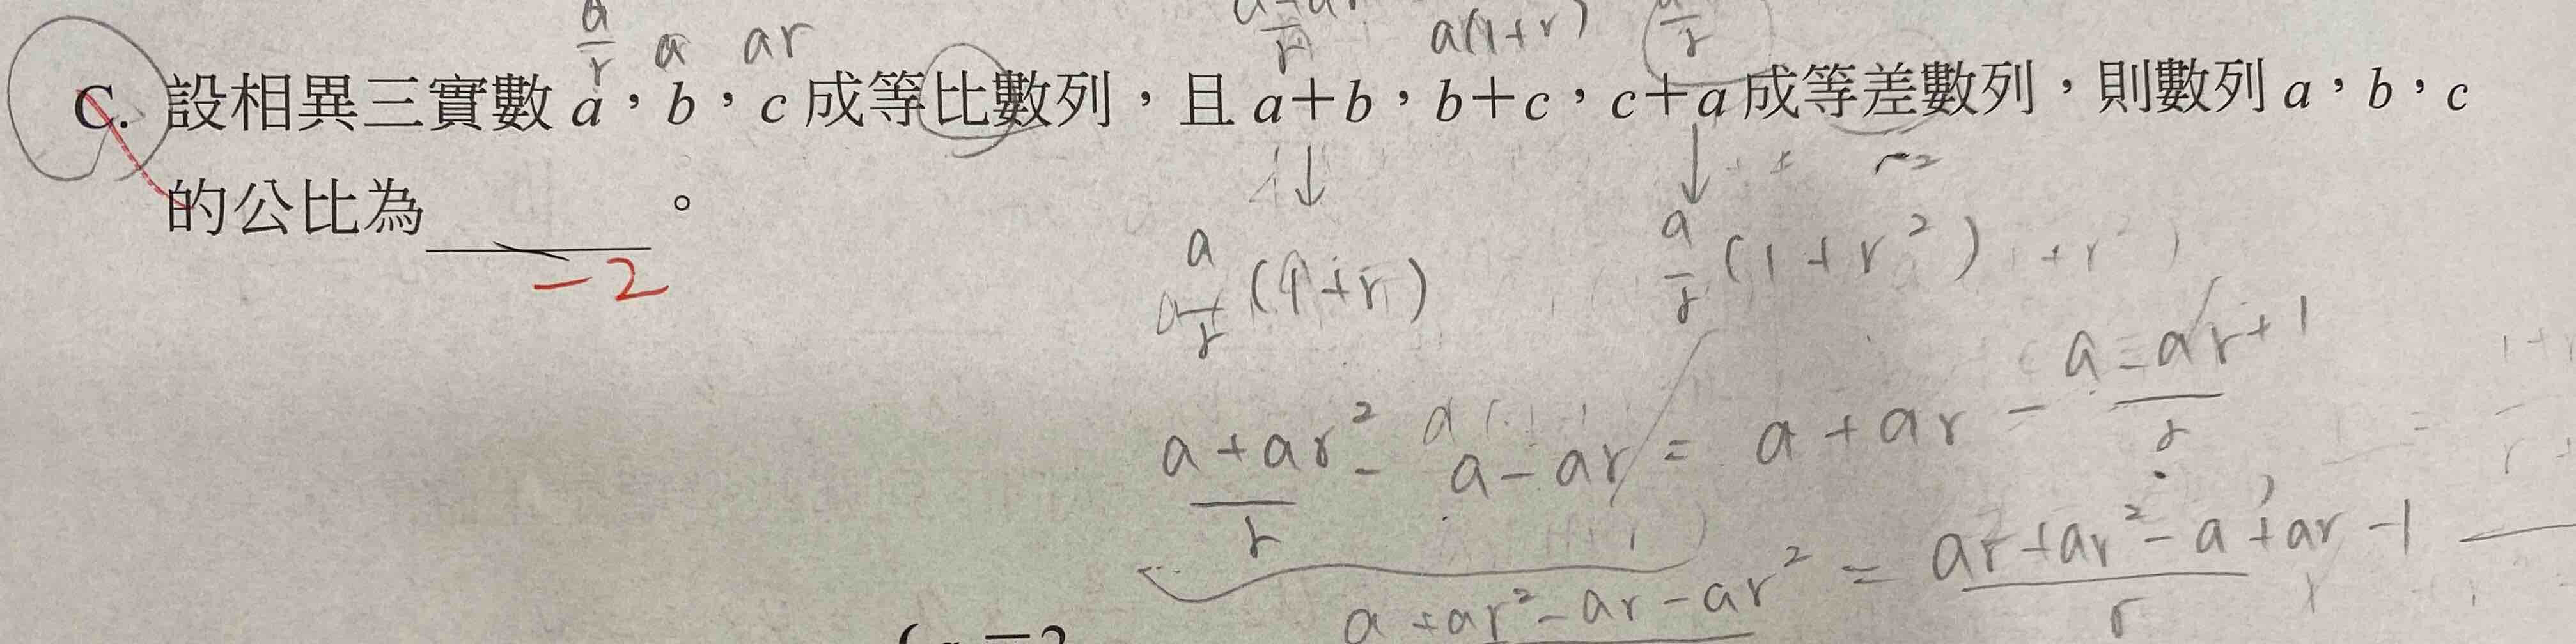 a/r a ar
a(1+r)
C. 設相異三實數 a，b，c 成等比數列，且 a＋b，b＋c，c＋a 成等差數列，則數列 a，b，c
的公比為＿＿＿＿。
-2
a/r (1+r)
a/r (1+r²)
(a+ar²)/r - a-ar = a+ar - (a-ar+1)/r
a+ar²-ar-ar² = (ar+ar²-a+ar-1)/r